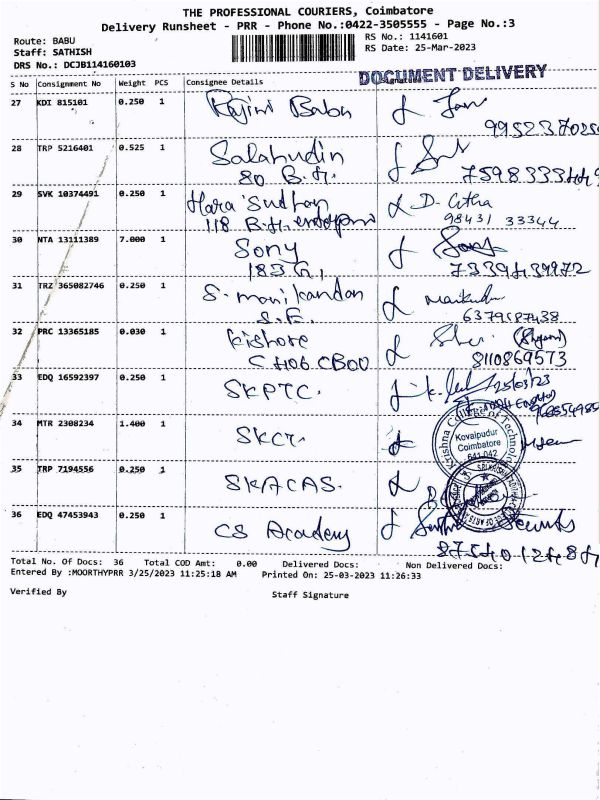 THE PROFESSIONAL COURIERS, Coimbatore
Delivery Runsheet - PRR - Phone No.:0422-3505555 - Page No.:3
Route: BABU
Staff: SATHISH
DRS No.: DCJB114160103
RS No.: 1141601
RS Date: 25-Mar-2023
DOCUMENT DELIVERY
S No Consignment No Weight PCS Consignee Details Signature
27 KDI 815101 0.250 1 Rajini Babu
28 TRP 5216401 0.525 1 Salahudin
80 B.H. 
29 SVK 10374491 0.250 1 Hara Sudhan D. Githa
118 98431 33344
30 NTA 13111389 7.000 1 Sony
183 G1
31 TRZ 365082746 0.250 1 S. manikandan
S.E. 6379587438
32 PRC 13365185 0.030 1 Kishore (Shyam)
CH06 CB00 8110869573
33 EDQ 16592397 0.250 1 SKPTC. 25/03/23
34 MTR 2308234 1.400 1 SKCT.
Krishna College of Technology
Kovaipudur
Coimbatore
641 042
35 TRP 7194556 0.250 1 SKACAS.
36 EDQ 47453943 0.250 1 CS Academy
Total No. Of Docs: 36 Total COD Amt: 0.00 Delivered Docs: Non Delivered Docs:
Entered By :MOORTHYPRR 3/25/2023 11:25:18 AM Printed On: 25-03-2023 11:26:33
Verified By Staff Signature